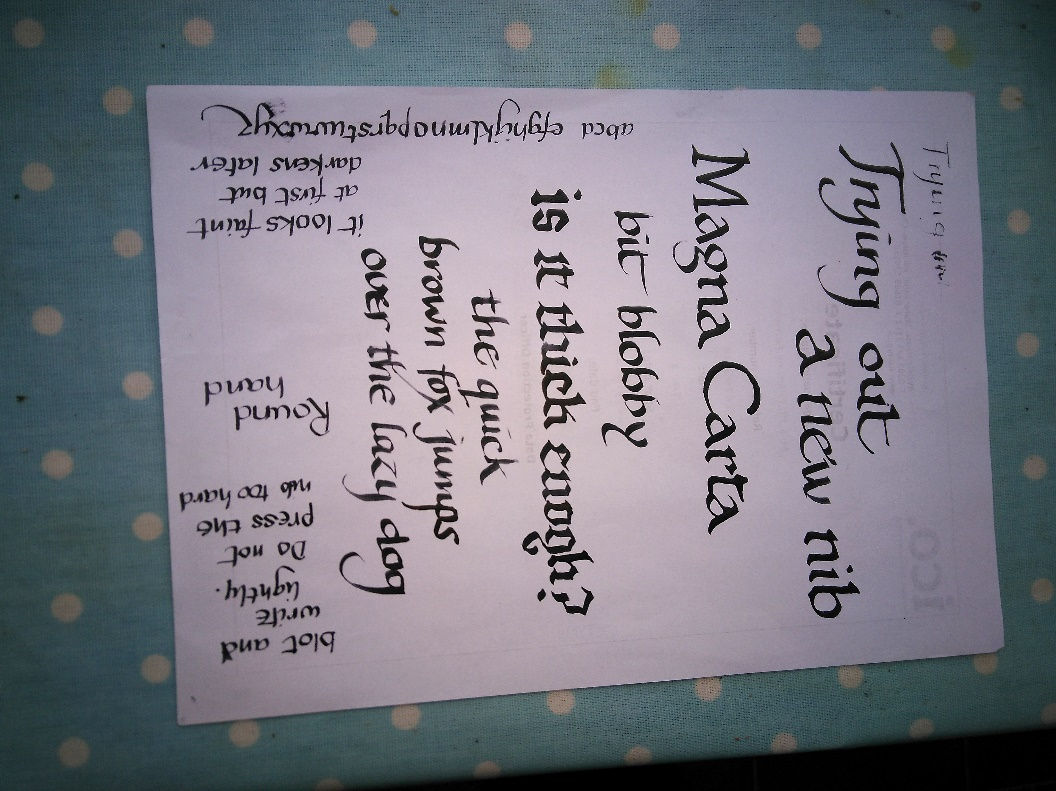 Trying
Trying out
a new nib
Magna Carta
bit blobby
is it thick enough?
the quick
brown fox jumps
over the lazy dog
abcd efghijklmnopqrstuvwxyz
it looks faint
at first but
darkens later
Round
hand
blot and
write
lightly.
Do not
press the
nib too hard
ICO